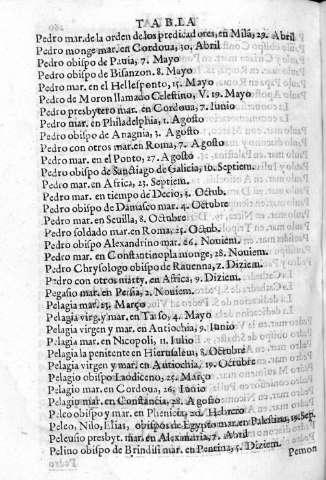 TABLA
Pedro mar. de la orden de los predicadores, en Milã, 29. Abril
Pedro monge mar. en Cordoua, 30. Abril
Pedro obispo de Pauia, 7. Mayo
Pedro obispo de Bisanzon. 8. Mayo
Pedro mar. en el Hellesponto, 15. Mayo
Pedro de Moron llamado Celestino, V. 19. Mayo
Pedro presbytero mar. en Cordoua, 7. Iunio
Pedro mar. en Philadelphia, 1. Agosto
Pedro obispo de Anagnia, 3. Agosto
Pedro con otros mar. en Roma, 7. Agosto
Pedro mar. en el Ponto, 27. Agosto
Pedro obispo de Sanctiago de Galicia, 10. Septiem.
Pedro mar. en Africa, 23. Septiem.
Pedro mar. en tiempo de Decio, 3. Octub.
Pedro obispo de Damasco mar. 4. Octubre
Pedro mar. en Seuilla, 8. Octubre
Pedro soldado mar. en Roma, 25. Octub.
Pedro obispo Alexandrino mar. 26. Nouiem.
Pedro mar. en Constantinopla monge, 28. Nouiem.
Pedro Chrysologo obispo de Rauenna, 2. Diziem.
Pedro con otros martyr, en Africa, 9. Diziem.
Pegasio mar. en Persia, 2. Nouiem.
Pelagia mar. 23. Março
Pelagia virg. y mar. en Tarso, 4. Mayo
Pelagia virgen y mar. en Antiochia, 9. Iunio
Pelagia mar. en Nicopoli, 11. Iulio
Pelagia la penitente en Hierusalem, 8. Octubre
Pelagia virgen y mar. en Antiochia, 19. Octubre
Pelagio obispo Laodiceno, 25. Março
Pelagio mar. en Cordoua, 26. Iunio
Pelagio mar. en Constancia, 28. Agosto
Peleo obispo y mar. en Phenicia, 20. Hebrero
Peleo, Nilo, Elias, obispos de Egypto mar. en Palestina, 19. Sep.
Peleusio presbyt. mar. en Alexandria, 7. Abril
Pelino obispo de Brindisi mar. en Pentina, 5. Diziem.
Pemon